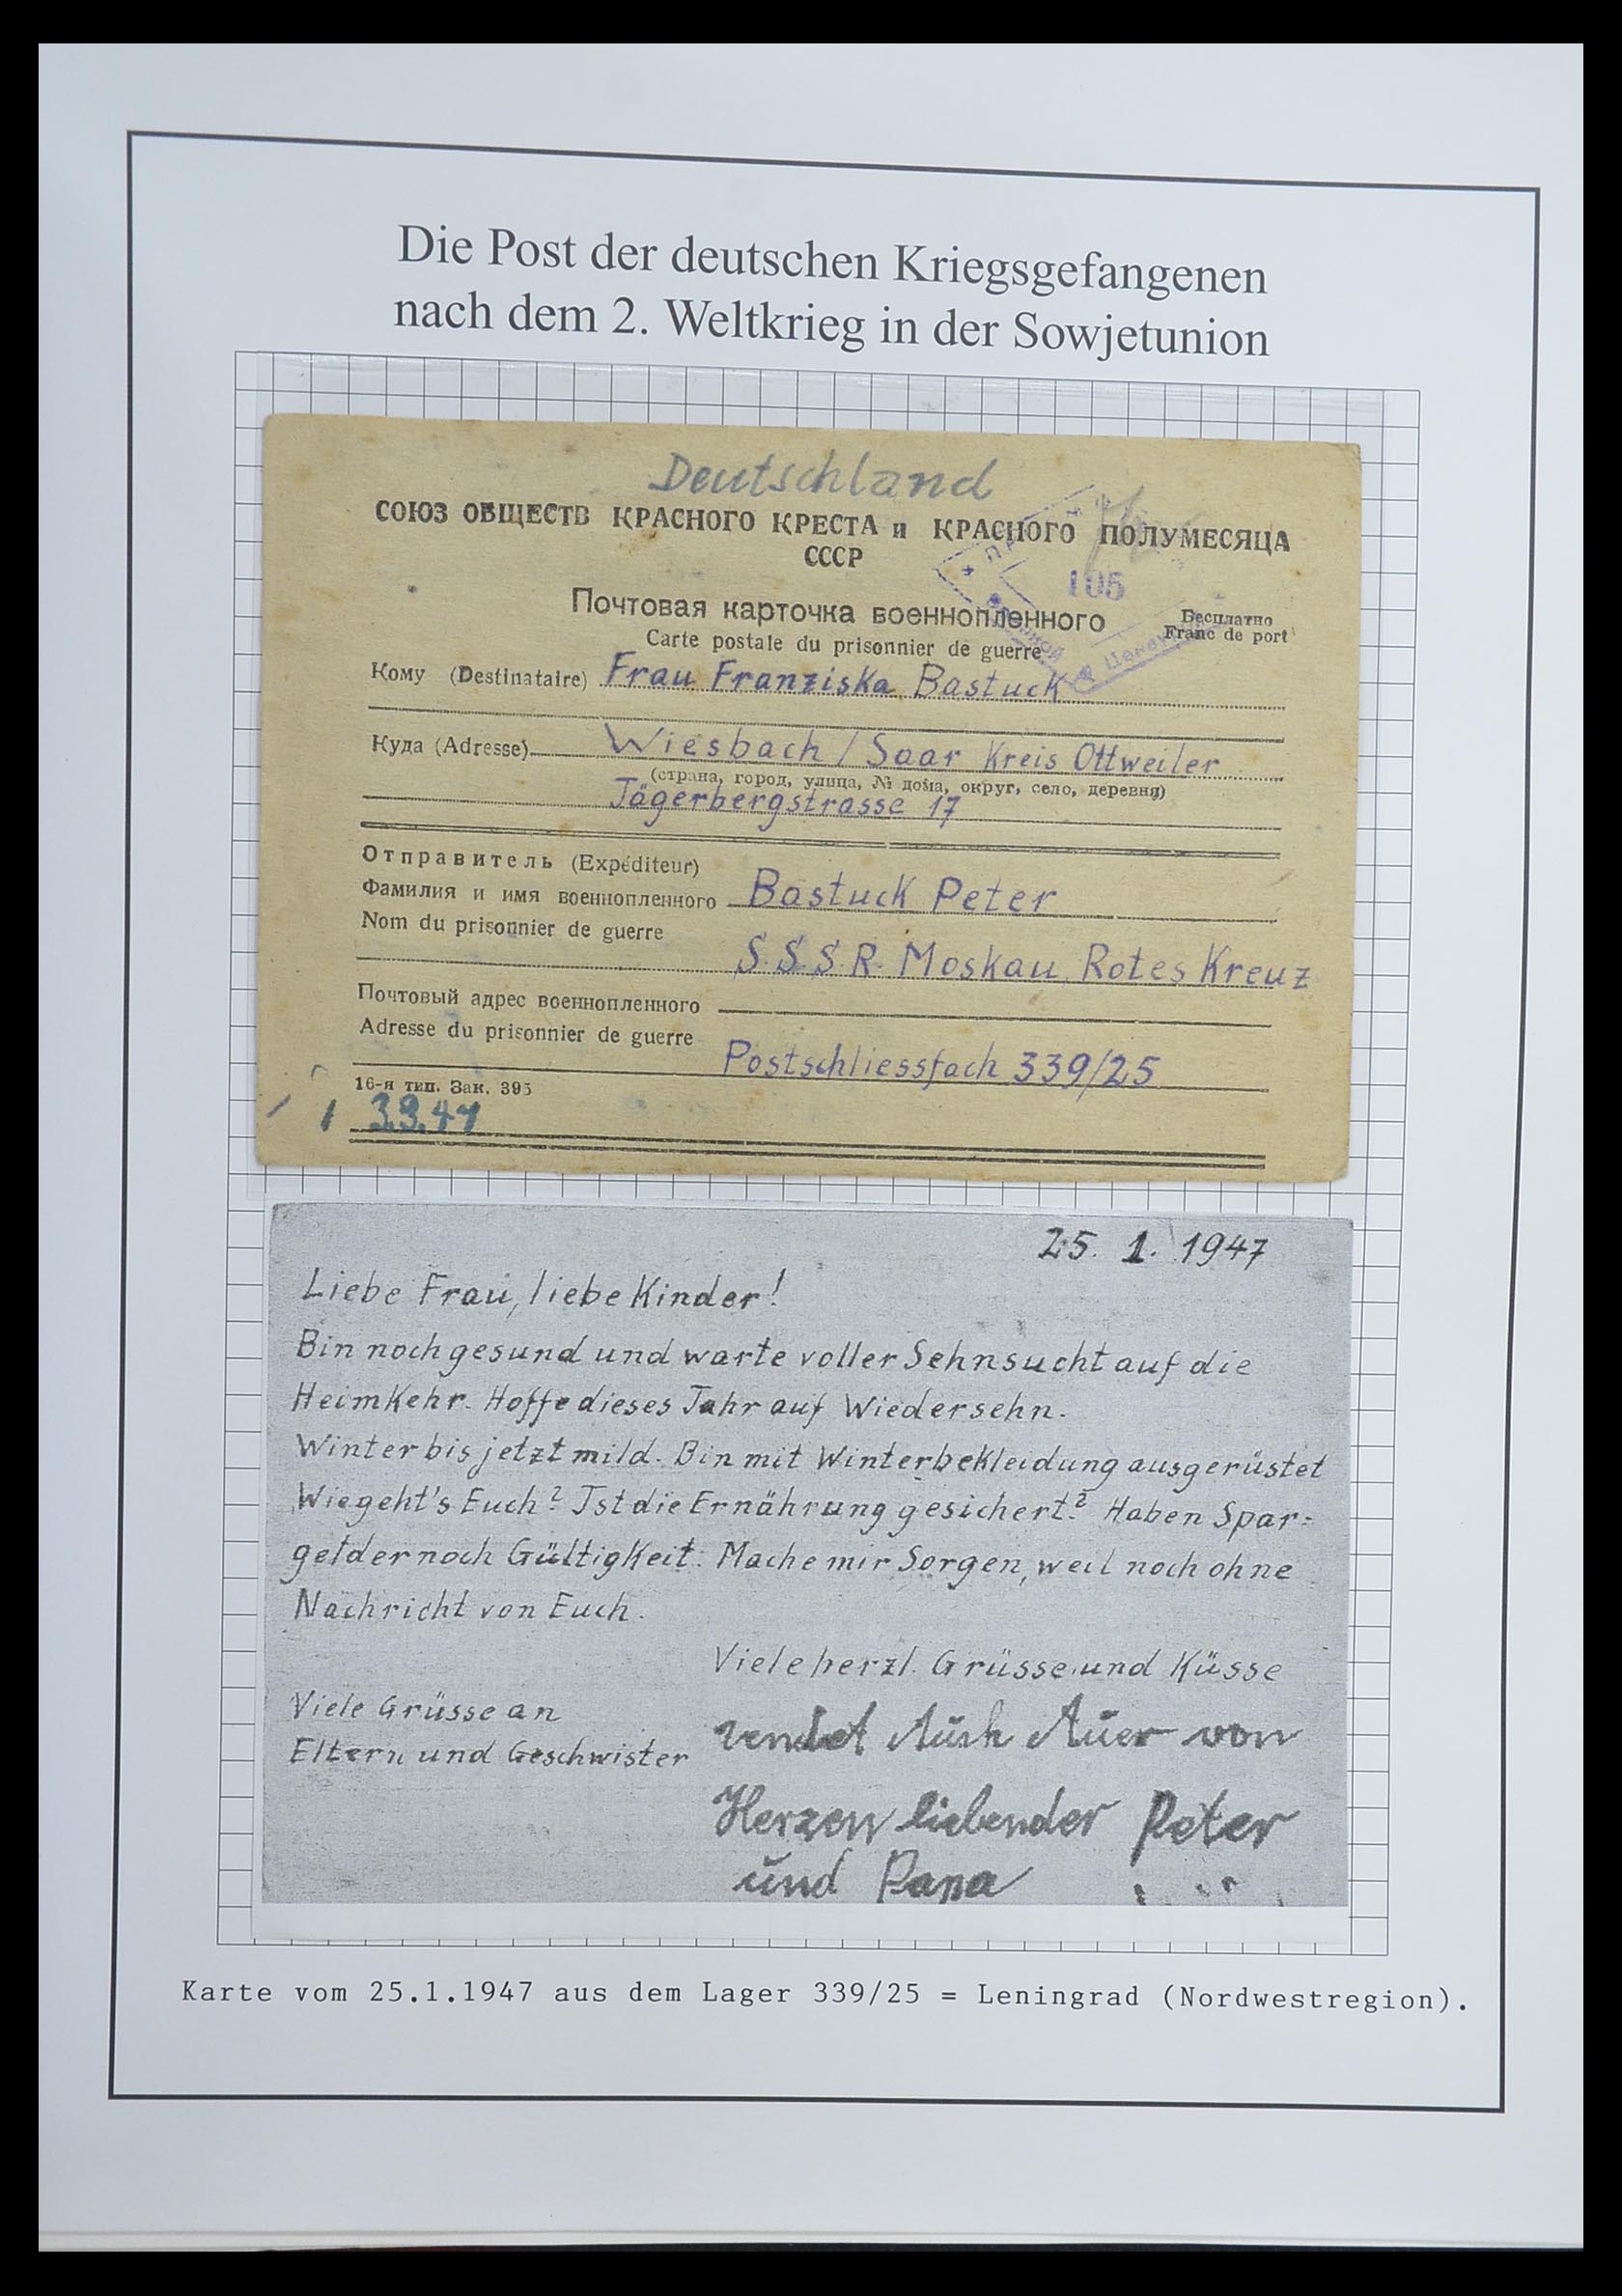 Die Post der deutschen Kriegsgefangenen
nach dem 2. Weltkrieg in der Sowjetunion
Deutschland
СОЮЗ ОБЩЕСТВ КРАСНОГО КРЕСТА и КРАСНОГО ПОЛУМЕСЯЦА
СССР
105
Почтовая карточка военнопленного
Бесплатно
Carte postale du prisonnier de guerre
Franc de port
Кому (Destinataire) Frau Franziska Bastuck
Куда (Adresse) Wiesbach / Saar Kreis Ottweiler
(страна, город, улица, № дома, округ, село, деревня)
Jägerbergstrasse 17
Отправитель (Expéditeur)
Фамилия и имя военнопленного Bastuck Peter
Nom du prisonnier de guerre
S.S.S.R. Moskau, Rotes Kreuz
Почтовый адрес военнопленного
Adresse du prisonnier de guerre
Postschliessfach 339/25
16-я тип. Зак. 395
25. 1. 1947
Liebe Frau, liebe Kinder!
Bin noch gesund und warte voller Sehnsucht auf die
Heimkehr. Hoffe dieses Jahr auf Wiedersehn.
Winter bis jetzt mild. Bin mit Winterbekleidung ausgerüstet
Wie geht's Euch? Ist die Ernährung gesichert? Haben Spar=
gelder noch Gültigkeit. Mache mir Sorgen, weil noch ohne
Nachricht von Euch.
Viele herzl. Grüsse und Küsse
Viele Grüsse an
Eltern und Geschwister
von
Herzen liebender Peter
und Papa
Karte vom 25.1.1947 aus dem Lager 339/25 = Leningrad (Nordwestregion).